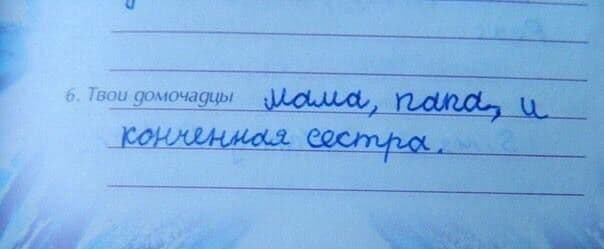 6. Твои домочадцы мама, папа, и
конченная сестра.